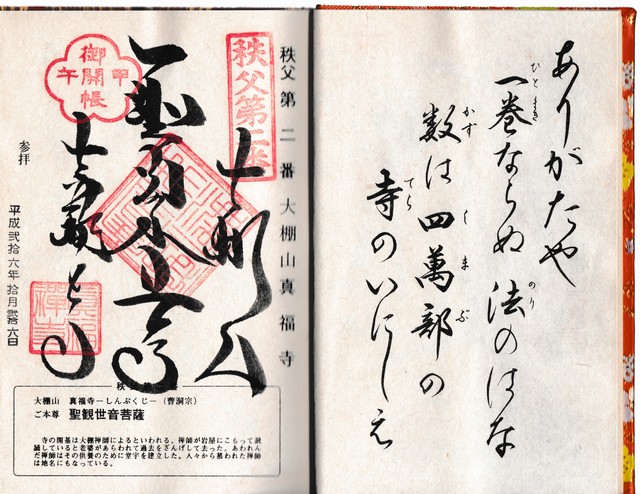 ありがたや
一巻ならぬ法のはな
ひとまき
のり
数は四萬部の
かず
しまぶ
寺のいにしえ
てら
秩父第二番 大棚山真福寺
秩父第二番
大棚山
聖観世音
真福寺
御開帳
甲
午
参拝
平成弐拾六年拾月弐拾六日
大棚山 真福寺―しんぷくじ―(曹洞宗)
ご本尊 聖観世音菩薩
寺の開基は大棚禅師によるといわれる。禅師が岩屋にこもって読
誦していると老婆があらわれて過去をざんげして去った。あわれん
だ禅師はその供養のために堂宇を建立した。人々から慕われた禅師
は地名にもなっている。